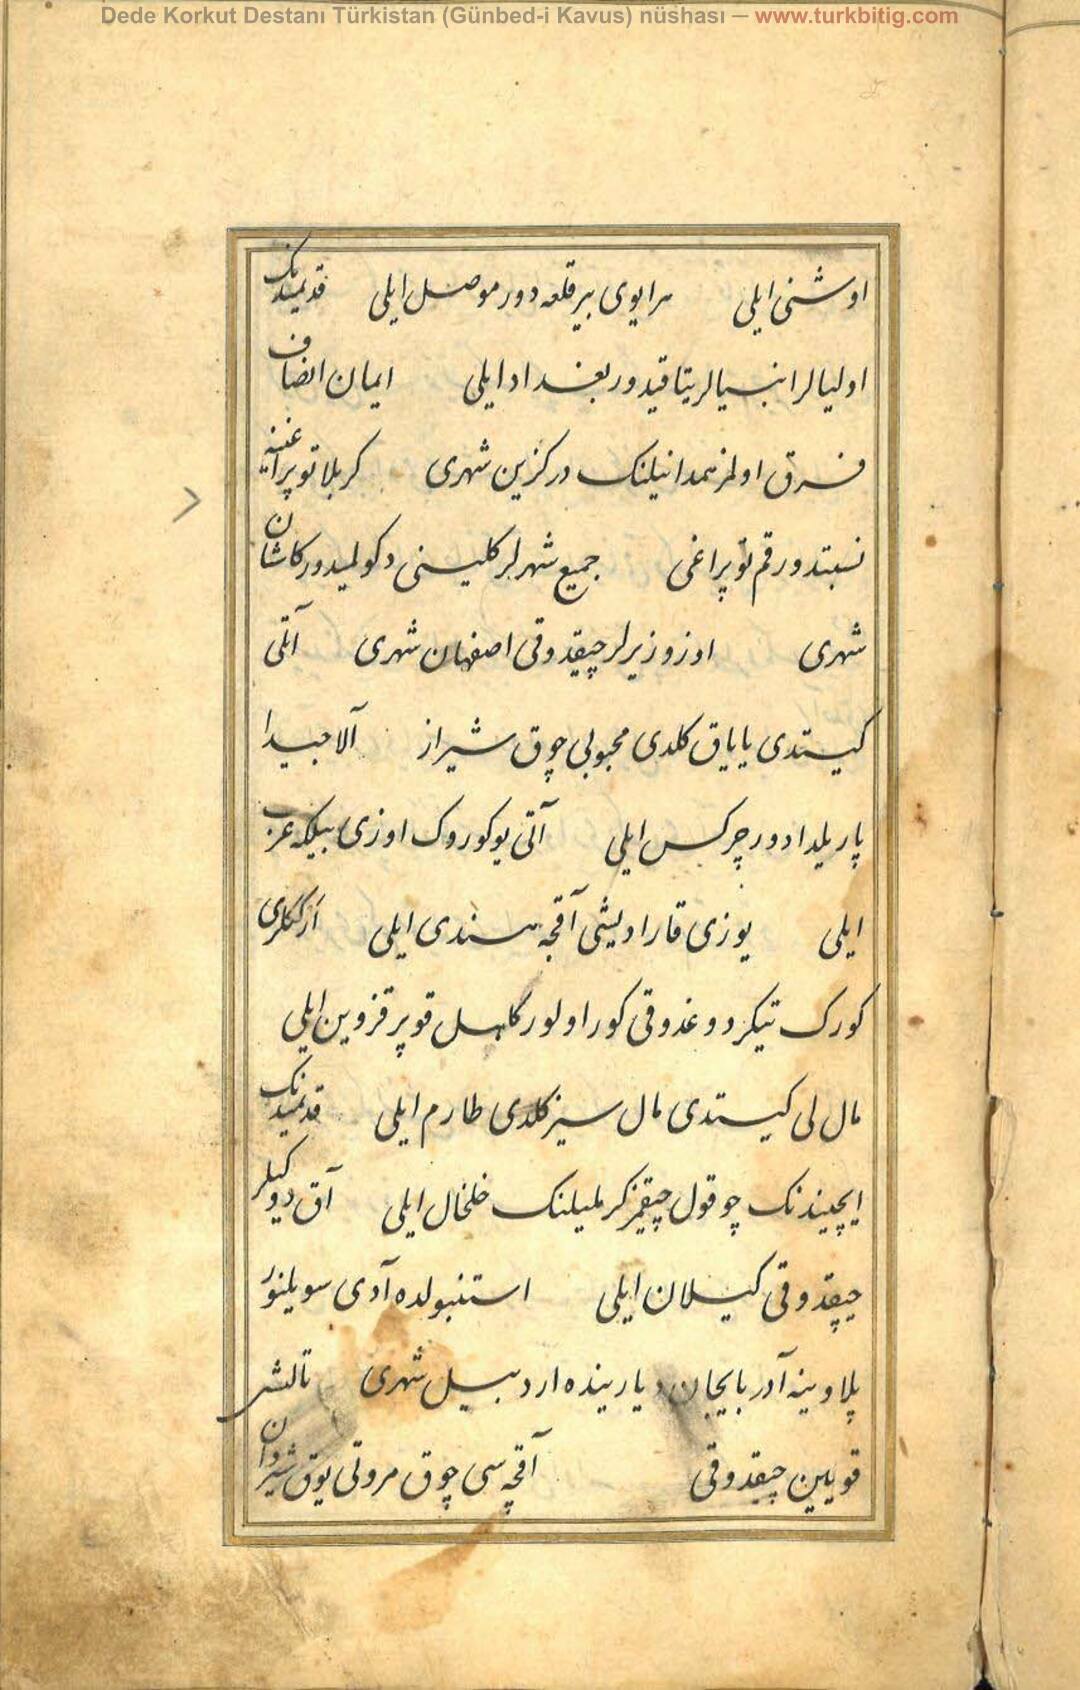 Dede Korkut Destanı Türkistan (Günbed-i Kavus) nüshası — www.turkbitig.com
اوشنی ایلی هر ایوی بیر قلعه دور موصل ایلی قدیمیدنک
اولیالر انبیالر یتاقیدور بغداد ایلی ایمان انصاف
فرق اولمز همدانیلنک درکزین شهری کربلا توپراغینه
نسبتدور قم توپراغی جمیع شهرلر کلینی دکولمیدور کاشان
شهری اوز وزیرلر چیقدوقی اصفهان شهری آتلی
کیتدی یایاق کلدی محبوبی چوق شیراز آلا جیدا
پاریلدادور چرکس ایلی آتی یوکوروک اوزی بیلکه عرب
ایلی یوزی قارا دیشی آقجه هندی ایلی ارککلری
کورک تیکز دوغدوقی کور اولور کاهل قوپر قزوین ایلی
مال لی کیتدی مال سیز کلدی طارم ایلی قدیمیدنک
ایچیندنک چوقول چیقمز کرملیلنک خلخال ایلی آق دوکیلر
چیقدوقی کیلان ایلی استنبولده آدی سویلنور
پلاوینه آدربایجان دیارینده اردبیل شهری تالش
قویین چیقدوقی آقچه سی چوق مروتی یوق شیروان